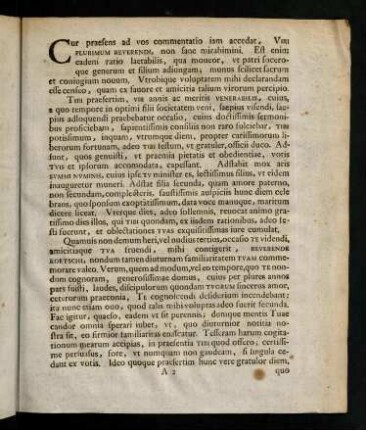 Cur praesens ad vos commentatio iam accedat, VIRI
PLURIMUM REVERENDI, non sane mirabimini. Est enim
eadem ratio laetabilis, qua moueor, vt patri socero-
que generum et filium adiungam, munus scilicet sacrum
et coniugium nouum. Vtrobique voluptatem mihi declarandam
esse censeo, quam ex fauore et amicitia talium virorum percipio.
TIBI praesertim, vir annis ac meritis VENERABILIS, cuius,
a quo tempore in optimi filii societatem veni, saepius visendi, sae-
pius adloquendi praebebatur occasio, cuius doctissimis sermoni-
bus proficiebam, sapientissimis consiliis non raro fulciebar, TIBI
potissimum, inquam, vtrumque diem, propter carissimorum li-
berorum fortunam, adeo TIBI festum, vt gratuler, officii duco. Ad-
sunt, quos genuisti, vt praestiti pietatis et obedientiae, votis
TVO et ipsorum accomodata, capessant. Adstabit mox aris
SVMMI NVMINIS, cuius ipse TV minister es, lectissimus filius, vt eidem
inauguretur muneri. Adstat filia secunda, quam amore paterno,
non secundam, complecteris, faustissimis auspiciis hunc diem cele-
brans, quo sponsum exoptatissimum, data voce manuque, maritum
dicere liceat. Verque dies, adeo sollemnis, renocat animo gra-
tissimo dies illos, qui TIBI quondam, ex iisdem rationibus, adeo fe-
sti fuerunt, et oblectationes TVAS exquisitissimas iure cumulat.
Quamuis non demum heri, vel nudius tertius, occasio TE videndi,
amicitiaque TVA fruendi, mihi contigerit, REVERENDE
nondum tamen diuturnam familiaritatem TVAM comme-
morare valeo. Verum, quem ad modum, vel eo tempore, quo TE non-
dum cognoram, generosissimae domus, cuius per plures annos
pars fuisti, laudes, discipulorum quondam TVORUM sincerus amor,
ceterorum praeconia, TE cognoscendi desiderium incendebant:
ita nunc etiam ouo, quod talis mihi voluptas adeo fuerit secunda.
Fac igitur, quaeso, eadem vt sit perennis; domque mentis Tuae
candor omnia sperari iubet, vt, quo diuturnior notitia no-
stra sit, eo firmior familiaritas enascatur. Tesseram harum cogita-
tionum mearum accipias, in praesentia TIBI quod offero, certissi-
me persuasus, fore, vt numquam non gaudeam, si singula ce-
dant ex votis. Ideo quoque praesertim hunc vere gratulor diem,
A 2 quo